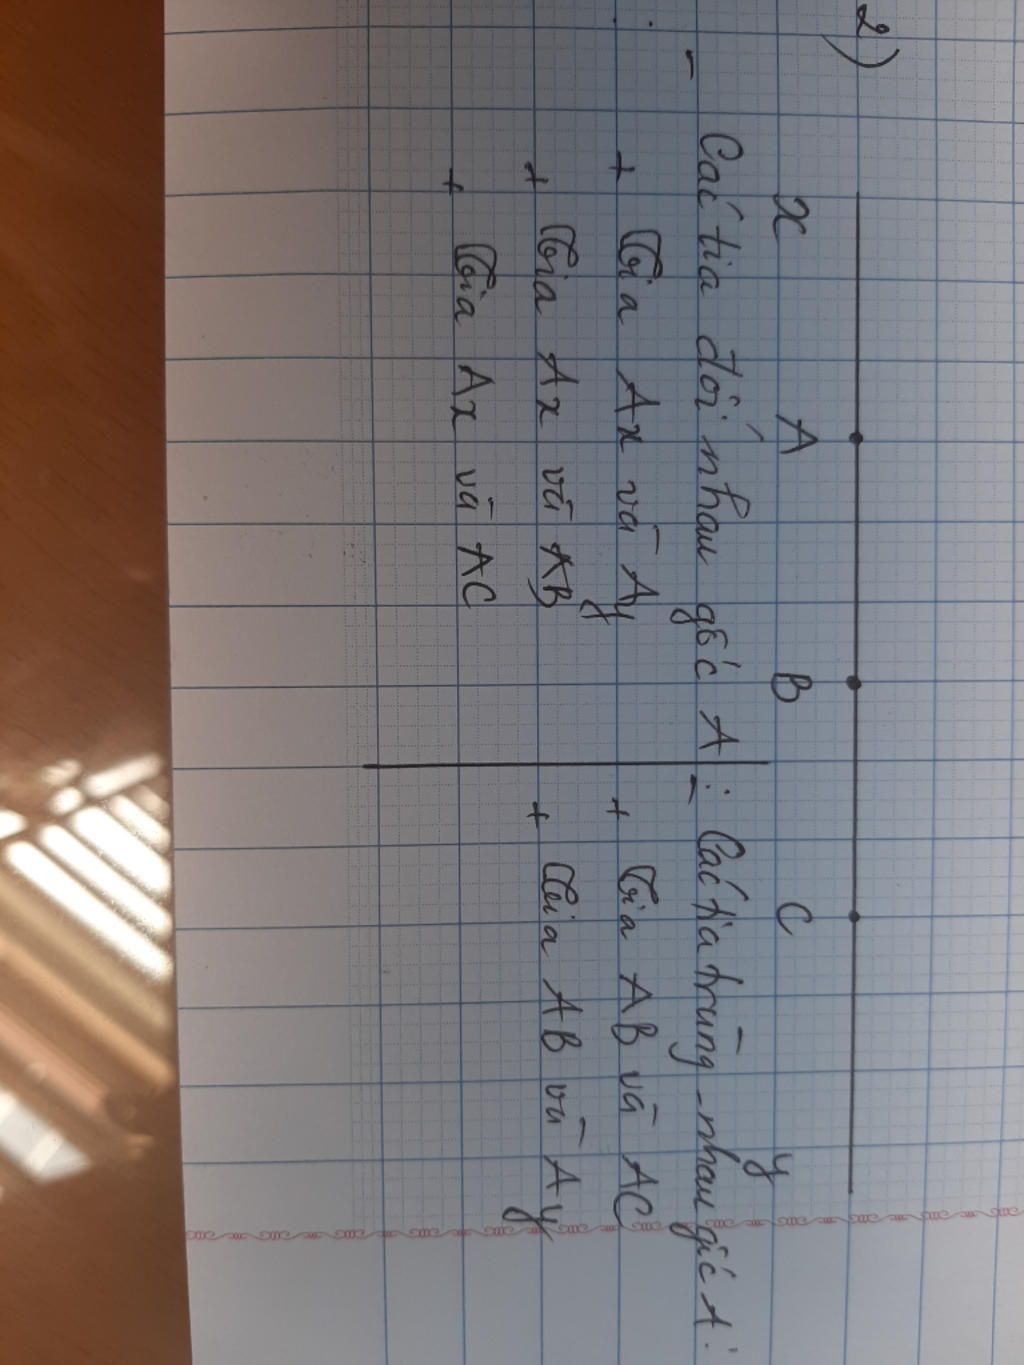 2)
x A B C y
- Các tia đối nhau gốc A :
+ Tia Ax và Ay
+ Tia Ax và AB
+ Tia Ax và AC
- Các tia trùng nhau gốc A :
+ Tia AB và AC
+ Tia AB và Ay